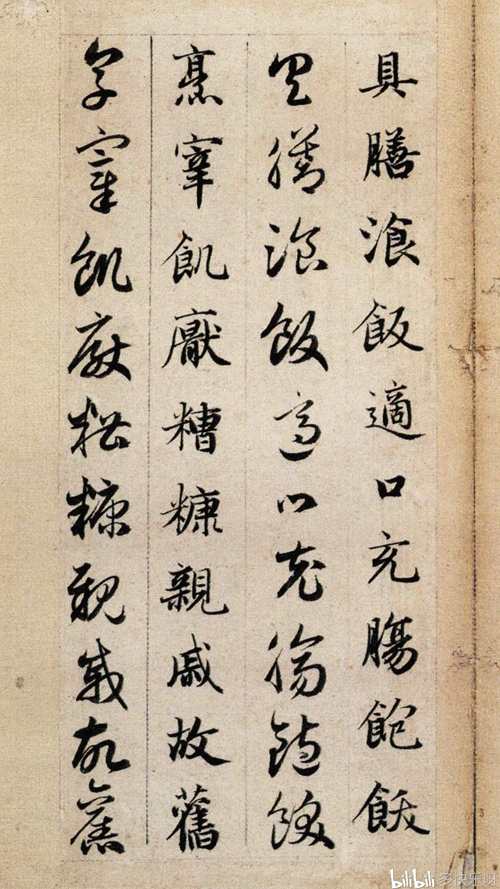 具膳湌飯適口充腸飽飫
具膳湌飯適口充腸飽飫
烹宰飢厭糟糠親戚故舊
烹宰飢厭糟糠親戚故舊
bilibili